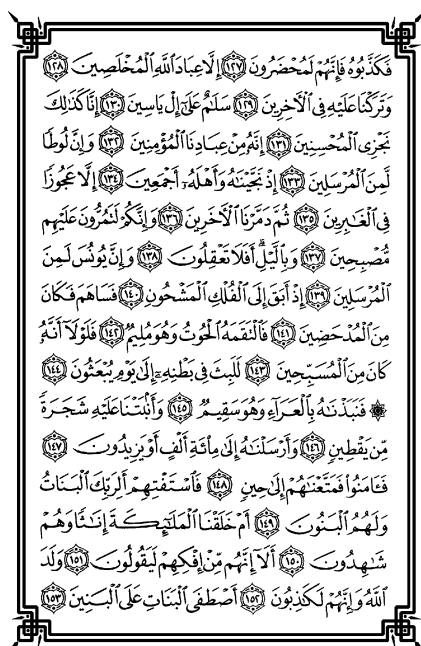 فَكَذَّبُوهُ فَإِنَّهُمْ لَمُحْضَرُونَ ١٢٧ إِلَّا عِبَادَ ٱللَّهِ ٱلْمُخْلَصِينَ ١٢٨
وَتَرَكْنَا عَلَيْهِ فِى ٱلْـَٔاخِرِينَ ١٢٩ سَلَـٰمٌ عَلَىٰٓ إِلْ يَاسِينَ ١٣٠ إِنَّا كَذَٰلِكَ
نَجْزِى ٱلْمُحْسِنِينَ ١٣١ إِنَّهُۥ مِنْ عِبَادِنَا ٱلْمُؤْمِنِينَ ١٣٢ وَإِنَّ لُوطًا
لَّمِنَ ٱلْمُرْسَلِينَ ١٣٣ إِذْ نَجَّيْنَـٰهُ وَأَهْلَهُۥٓ أَجْمَعِينَ ١٣٤ إِلَّا عَجُوزًا
فِى ٱلْغَـٰبِرِينَ ١٣٥ ثُمَّ دَمَّرْنَا ٱلْـَٔاخَرِينَ ١٣٦ وَإِنَّكُمْ لَتَمُرُّونَ عَلَيْهِم
مُّصْبِحِينَ ١٣٧ وَبِٱلَّيْلِ ۗ أَفَلَا تَعْقِلُونَ ١٣٨ وَإِنَّ يُونُسَ لَمِنَ
ٱلْمُرْسَلِينَ ١٣٩ إِذْ أَبَقَ إِلَى ٱلْفُلْكِ ٱلْمَشْحُونِ ١٤٠ فَسَاهَمَ فَكَانَ
مِنَ ٱلْمُدْحَضِينَ ١٤١ فَٱلْتَقَمَهُ ٱلْحُوتُ وَهُوَ مُلِيمٌ ١٤٢ فَلَوْلَآ أَنَّهُۥ
كَانَ مِنَ ٱلْمُسَبِّحِينَ ١٤٣ لَلَبِثَ فِى بَطْنِهِۦٓ إِلَىٰ يَوْمِ يُبْعَثُونَ ١٤٤
۞ فَنَبَذْنَـٰهُ بِٱلْعَرَآءِ وَهُوَ سَقِيمٌ ١٤٥ وَأَنۢبَتْنَا عَلَيْهِ شَجَرَةً
مِّن يَقْطِينٍ ١٤٦ وَأَرْسَلْنَـٰهُ إِلَىٰ مِا۟ئَةِ أَلْفٍ أَوْ يَزِيدُونَ ١٤٧
فَـَٔامَنُوا۟ فَمَتَّعْنَـٰهُمْ إِلَىٰ حِينٍ ١٤٨ فَٱسْتَفْتِهِمْ أَلِرَبِّكَ ٱلْبَنَاتُ
وَلَهُمُ ٱلْبَنُونَ ١٤٩ أَمْ خَلَقْنَا ٱلْمَلَـٰٓئِكَةَ إِنَـٰثًا وَهُمْ
شَـٰهِدُونَ ١٥٠ أَلَآ إِنَّهُم مِّنْ إِفْكِهِمْ لَيَقُولُونَ ١٥١ وَلَدَ
ٱللَّهُ وَإِنَّهُمْ لَكَـٰذِبُونَ ١٥٢ أَصْطَفَى ٱلْبَنَاتِ عَلَى ٱلْبَنِينَ ١٥٣